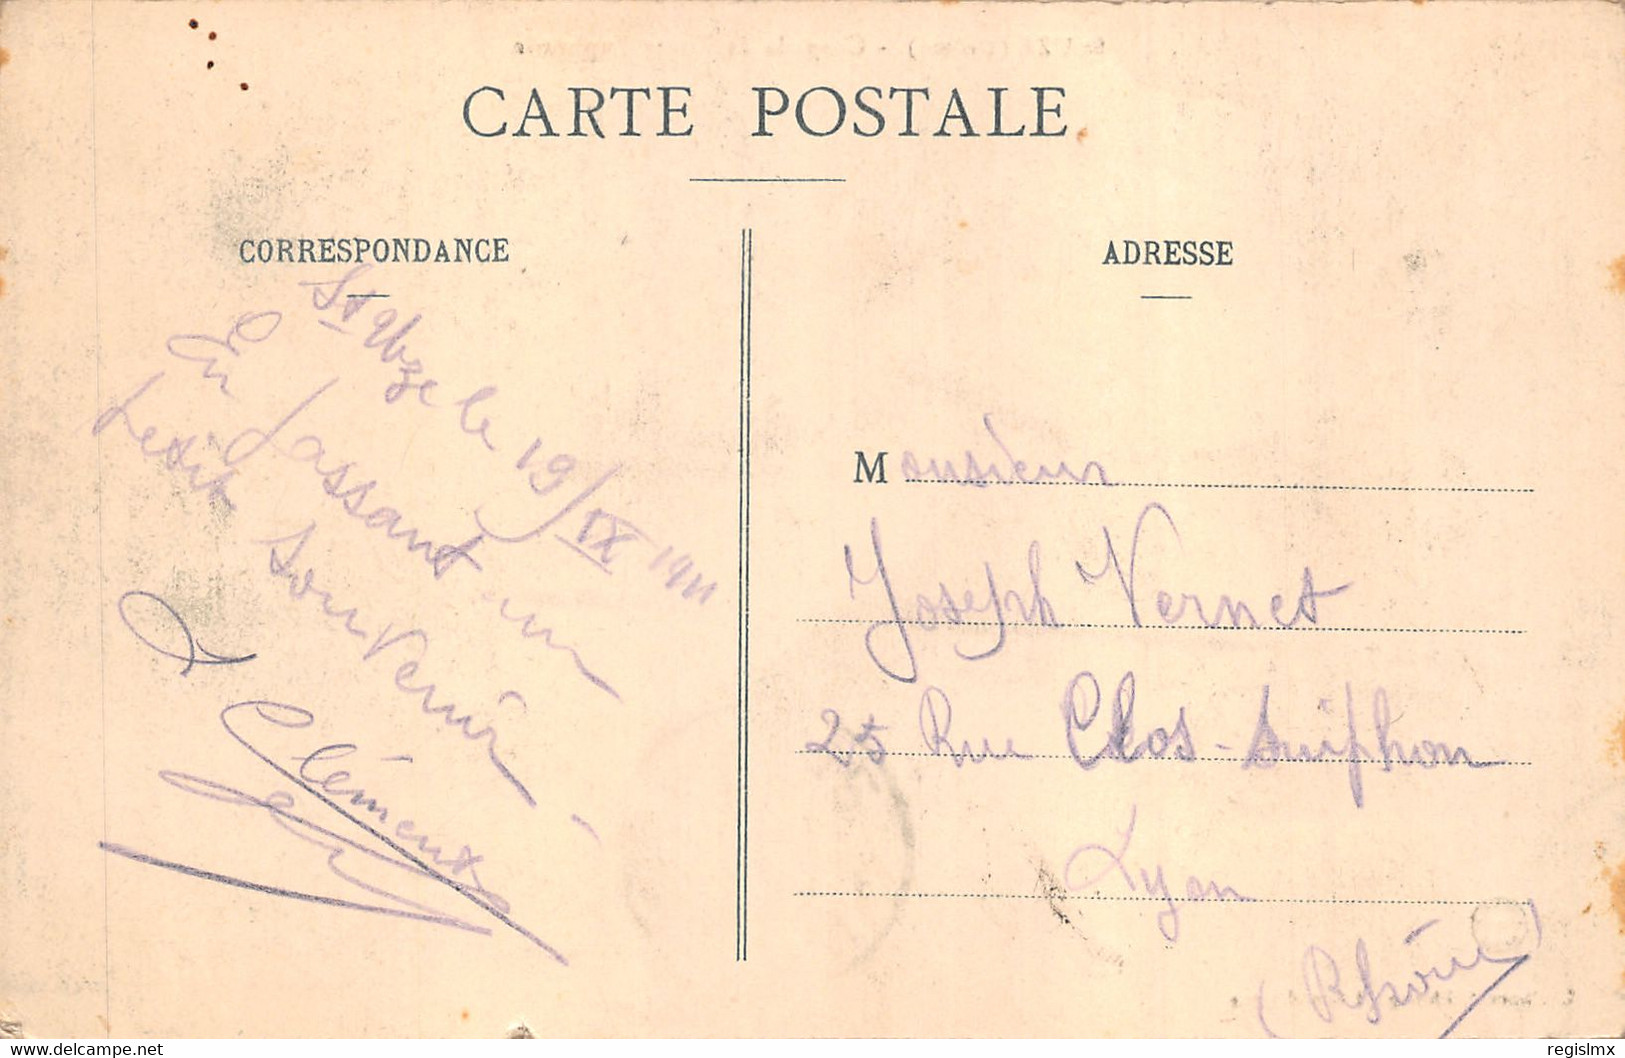 CARTE POSTALE
CORRESPONDANCE
St Uze le 19/IX 1911
En passant un
petit souvenir
Clément
ADRESSE
Monsieur
Joseph Vernet
25 Rue Clos-Suiphon
Lyon
(Rhône)
regislmx